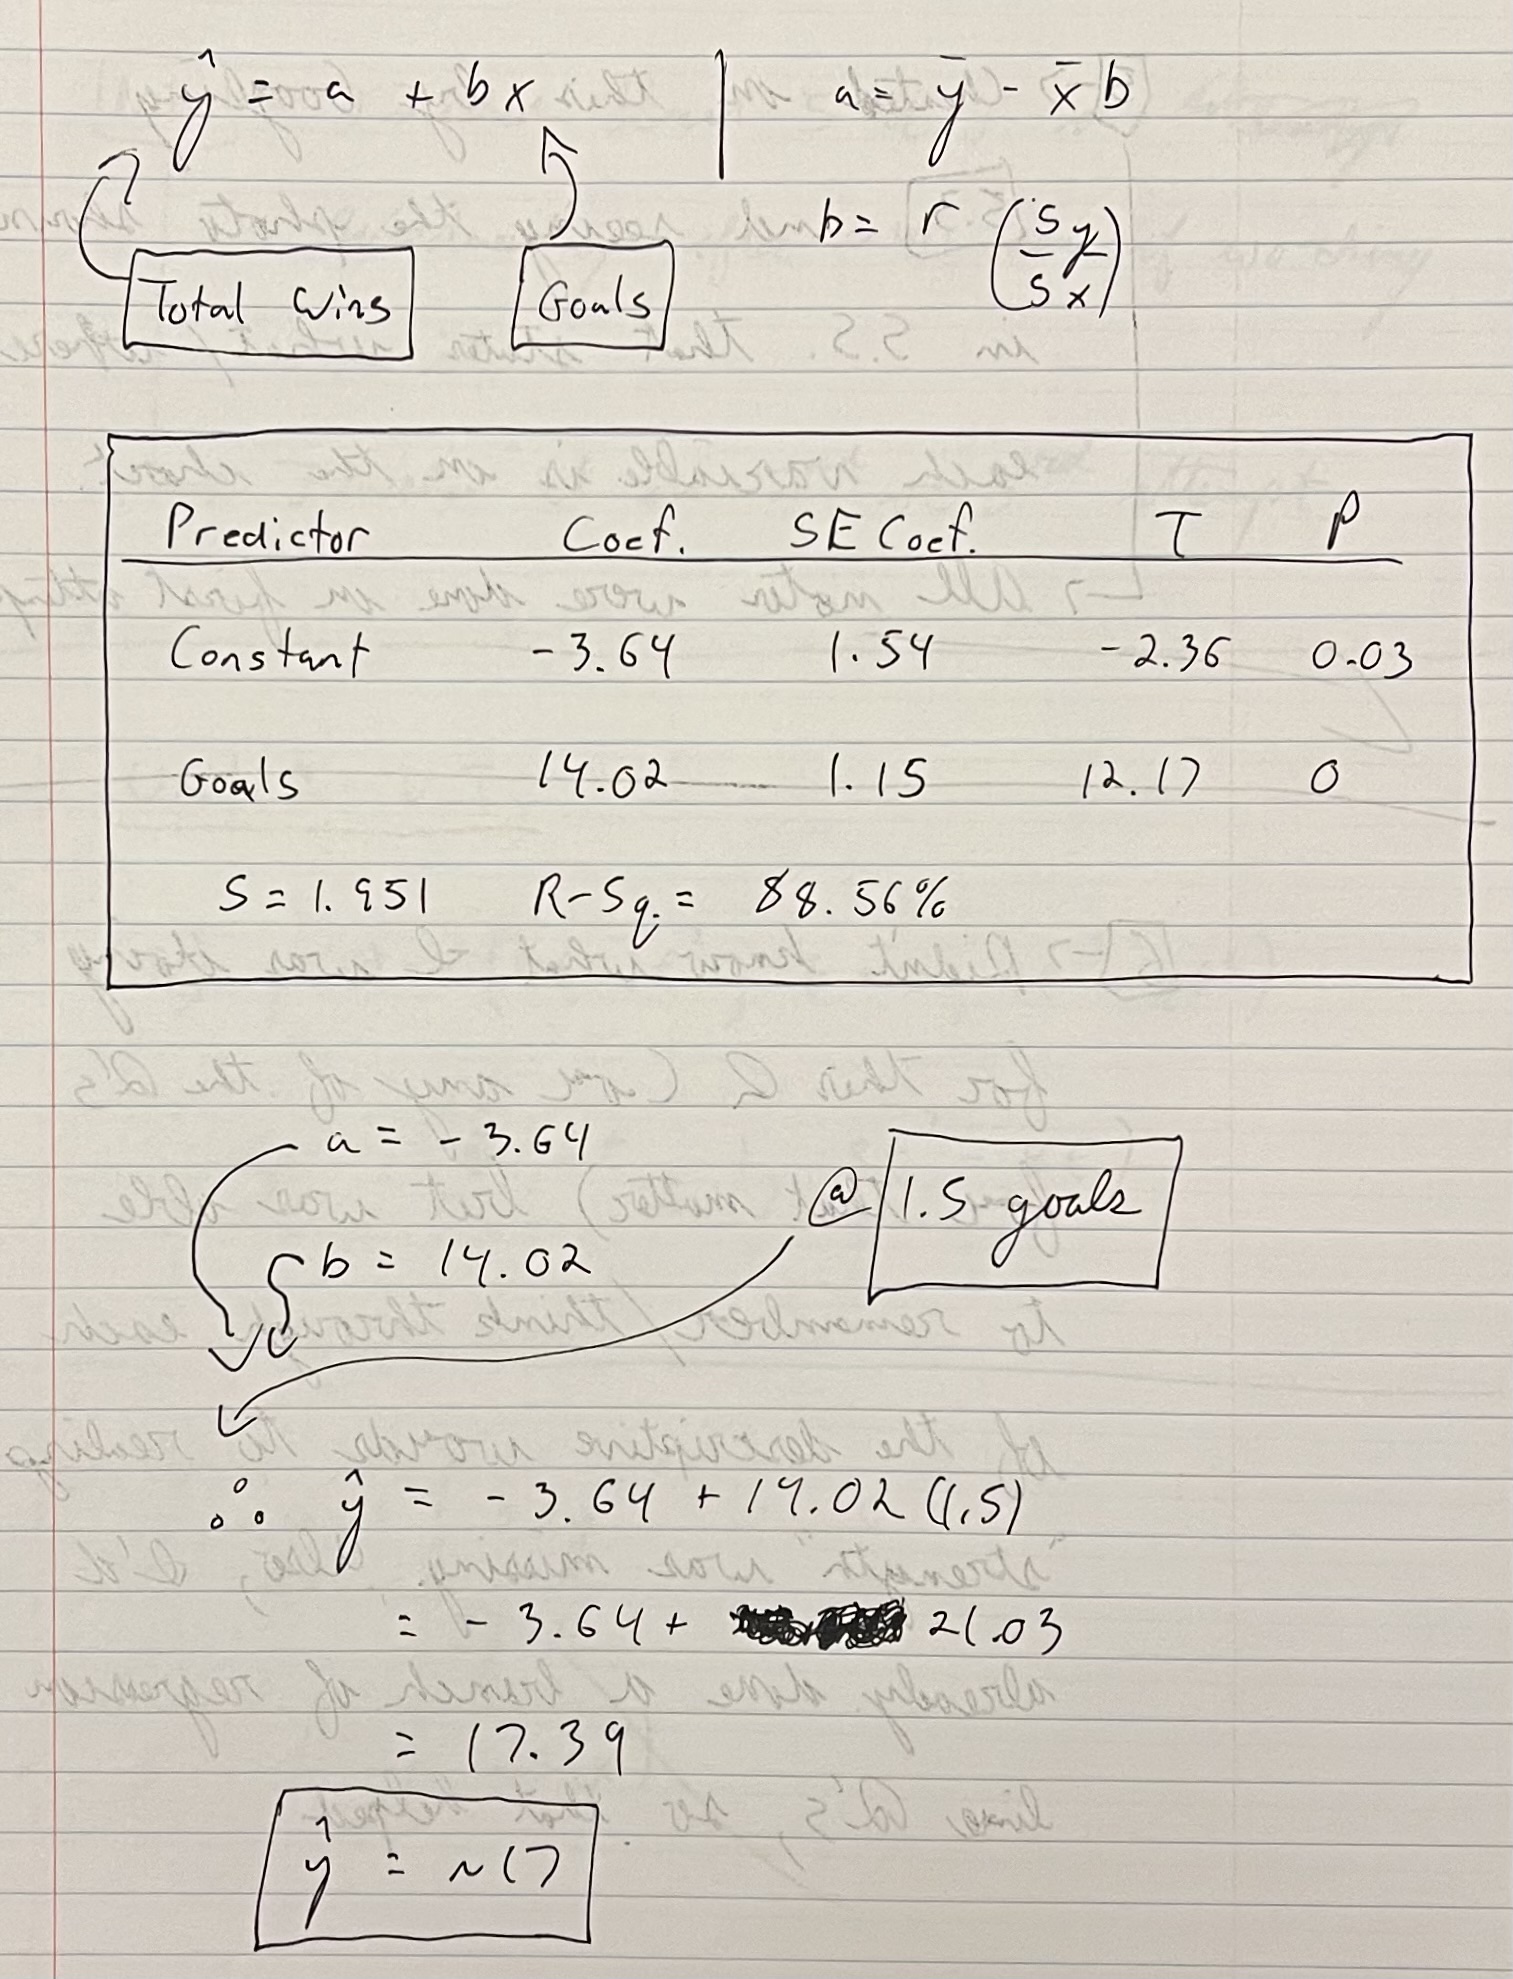 ŷ = a + bx | a = ȳ - x̄ b
b = r (Sy/Sx)
Total Wins Goals
Predictor Coef. SE Coef. T P
Constant -3.64 1.54 -2.36 0.03
Goals 14.02 1.15 12.17 0
S = 1.951 R-Sq. = 88.56%
a = -3.64
@ 1.5 goals
b = 14.02
∴ ŷ = -3.64 + 14.02 (1.5)
= -3.64 + 21.03
= 17.39
ŷ = ~17